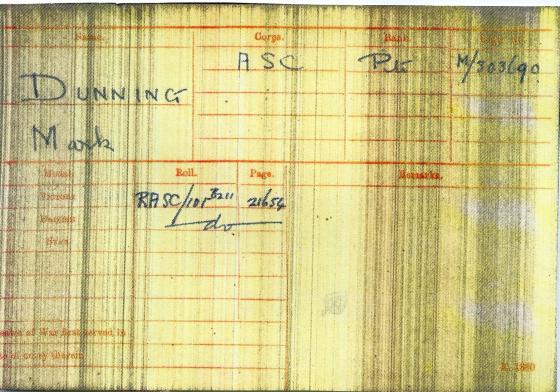 Name. Corps. Rank.
ASC Pte M/303690
DUNNING
Mark
Medal. Roll. Page. Remarks.
Victory RASC/101 B211 21654
British do
Star
Theatre of War first served in
Date of entry therein
K. 1380